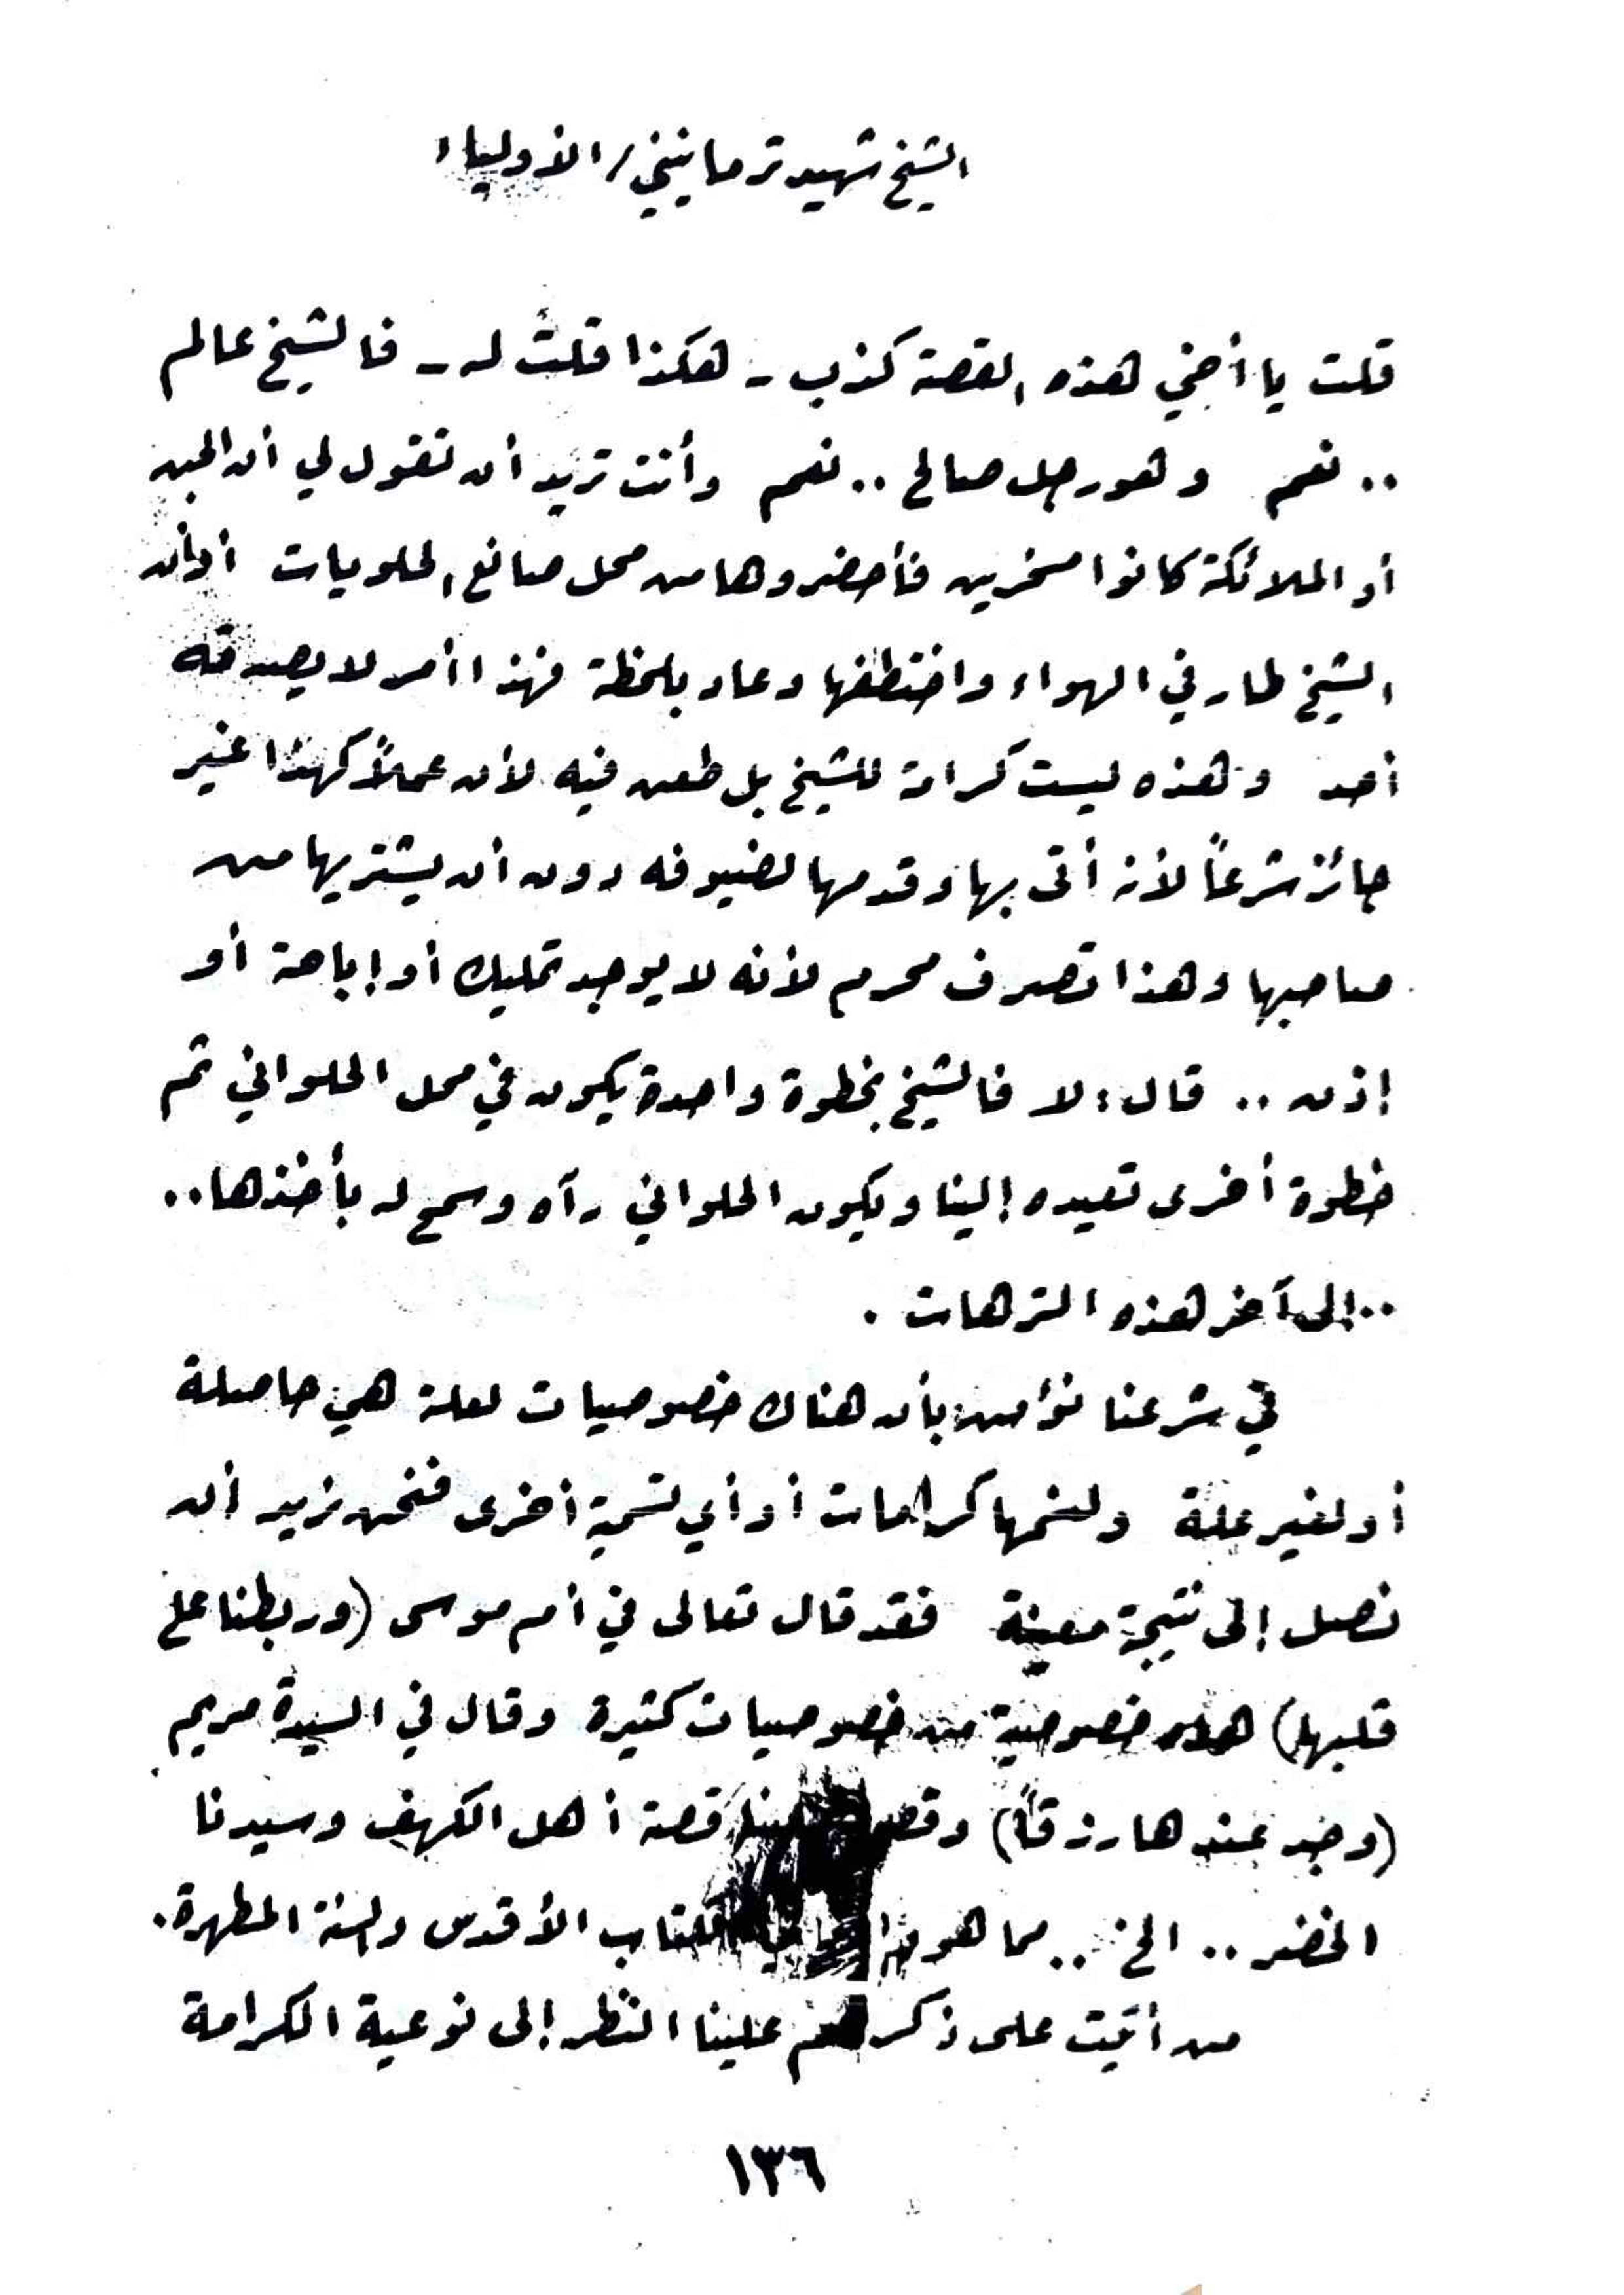 الشيخ شهيد ترمانيني / الأولياء
قلت يا أخي هذه القصة كذب - هكذا قلتُ له - فالشيخ عالم
.. نعم وهو رجل صالح .. نعم وأنت تريد أن تقول لي أن الجن
أو الملائكة كانوا مسخرين فأحضروها من محل صانع الحلويات أو أن
الشيخ طار في الهواء واختطفها وعاد بلحظة فهذا أمر لا يصدقه
أحد وهذه ليست كرامة للشيخ بل طعن فيه لأن عملاً كهذا غير
جائز شرعاً لأنه أتى بها وقدمها لضيوفه دون أن يشتريها من
صاحبها وهذا تصرف محرم لأنه لا يوجد تمليك أو إباحة أو
إذن .. قال : لا فالشيخ بخطوة واحدة يكون في محل الحلواني ثم
خطوة أخرى تعيده إلينا ويكون الحلواني رآه وسمح له بأخذها ..
.. إلى آخر هذه الترهات .
في شرعنا نؤمن بأن هناك خصوصيات لعلة هي حاصلة
أو لغير علة ولنسمها كرامات أو أي تسمية أخرى فنحن نريد أن
نصل إلى نتيجة معينة فقد قال تعالى في أم موسى (وربطنا على
قلبها) هذه خصوصية من خصوصيات كثيرة وقال في السيدة مريم
(وجد عندها رزقاً) وقص علينا قصة أهل الكهف وسيدنا
الخضر .. الخ .. مما هو الكتاب الأقدس والسنة المطهرة .
من أتيت على ذكرهم علينا النظر إلى نوعية الكرامة
١٣٦